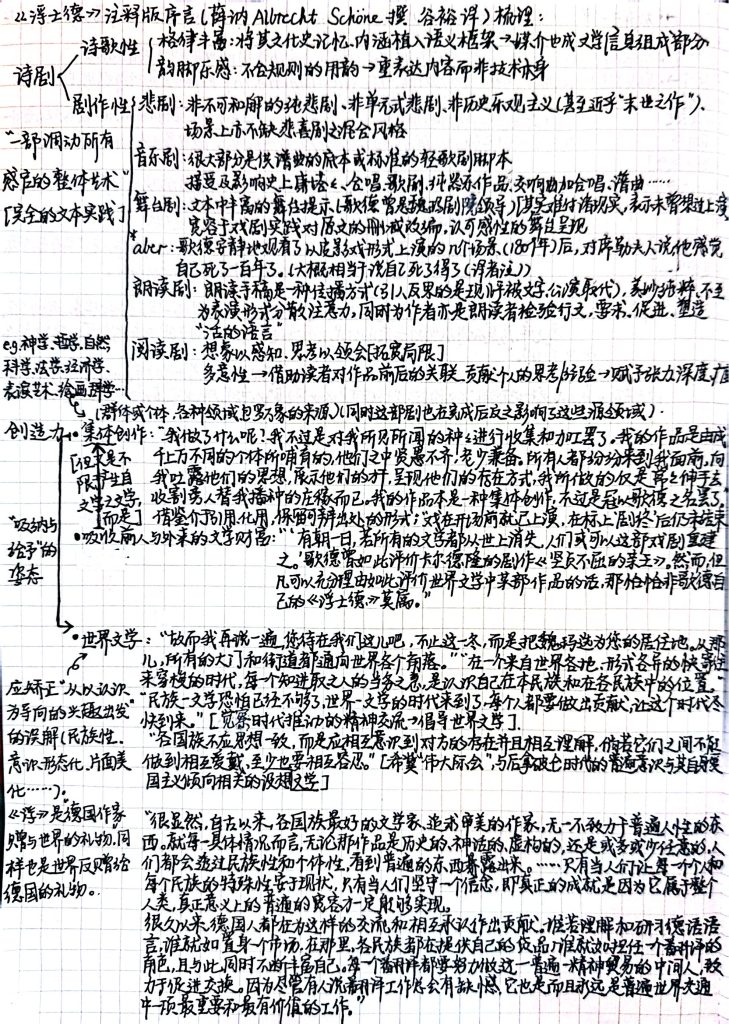 《浮士德》注释版序言(薛讷 Albrecht Schöne 撰 谷裕译)梳理:
诗剧
诗歌性
格律丰富:将其文化史记忆、内涵植入语义框架→媒介也成文学信息组成部分
韵脚乐感:不合规则的用韵→重表达内容而非技术本身
剧作性
悲剧:非不可和解的纯悲剧、非单元式悲剧、非历史乐观主义(甚至近乎"末世之作")、
场景上亦不缺悲喜剧之混合风格
"一部调动所有
感官的整体艺术"
[完全的文本实践]
音乐剧:很大部分是供谱曲的底本或标准的轻歌剧脚本
接受及影响史上 合唱、歌剧、纯器乐作品、交响曲加合唱、谱曲……
舞台剧:文本中丰富的舞台提示(歌德曾是魏玛剧院领导)[其实推付诸现实,表示未曾想过上演
宽容于戏剧实践对原文的删减改编,认可感性的舞台呈现
*aber:歌德安静地观看了以皮影戏形式上演的几个场景(18 年)后,对 夫人说他感觉
自己死了一百年了。(大概相当于说自己死了得了(译者注))
朗读剧:朗读手稿是一种传播方式(引人反思的是现 被文字、公演取代),美妙纯粹,不至
为表演形式分散注意力,同时为作者亦是朗读者检验行文,要求、促进、塑造
"活的语言"
阅读剧:想象以感知、思考以领会[拓宽局限]
多意性→借助读者对作品前后的关联、贡献个人的思考与经验→赋予张力、深度、广度
e.g.神学、哲学、自然
科学、法学、经济学、
表演艺术、绘画、理学…
(群体或个体,各种领域包罗万象的来源)(同时这部剧也在完成后反之影响了这些源领域)
创造力
·集体创作:"我做了什么呢?我不过是对我所见所闻的种种进行收集和加工罢了。我的作品是由成
千上万不同的个体所哺育的,他们之中贤愚不齐,老少兼备。所有人都纷纷来到我面前,向
我吐露他们的思想,展示他们的才能,呈现他们的存在方式,我所做的仅是常常伸手去
收割旁人替我播种的庄稼而已。我的作品本是一种集体创作,不过是冠以歌德之名罢了"
[但是不
限于生自
文学之文学,
而是]
借鉴个引用、化用,保留可辨出处的形式;戏在开场前就已上演,在标上"剧终"后仍未结束
·吸收前人与外来的文学财富:"有朝一日,若所有的文学都从世上消失,人们或可以这部戏剧重建
之。'歌德曾如此评价卡尔德隆的剧作《坚贞不屈的亲王》。然而,但
凡可以充分理由如此评价世界文学中某部作品的话,那恰恰非歌德自
己的《浮士德》莫属。"
"吸纳与
给予"的
姿态
·世界文学:"故而我再说一遍,您待在我们这儿吧,不止这一冬,而是把魏玛选为您的居住地。从那
儿,所有的大门和街道都通向世界各个角落。""在一个来自世界各地、形式各异的
来容摸的时代,每一个知进取之人的当务之急,是认识自己在本民族和在各民族中的位置。"
"民族-文学恐怕已经不够了,世界-文学的时代来到了,每个人都要做出贡献,让这个时代尽
快到来。"[观察时代推动的精神交流→倡导世界文学]
"各国族不应思想一致,而是应相互意识到对方的存在并且相互理解,倘若它们之间不能
做到相互爱戴,至少也要相互容忍。"[希冀"伟大际会",与后拿破仑时代的普遍意识与其自身爱
国主义倾向相关的设想文学]
应矫正"从以认识
为导向的兴趣出发"
的误解(民族性、
意识形态化、片面美
化……)。
《浮》是德国作家
赠与世界的礼物,同
样也是世界反赠给
德国的礼物。
"很显然,自古以来,各国族最好的文学家、追求审美的作家,无一不致力于普遍人性的东
西。就每一具体情况而言,无论那作品是历史的、神话的、虚构的,还是或多或少任意的,人
们都会透过民族性和个体性,看到普遍的东西暴露出来。……只有当人们让每一个人和
每个民族的特殊性安于现状,只有当人们坚守一个信念,即真正的成就是因为它属于整个
人类,真正意义上的普遍的宽容才一定能够实现。
很久以来,德国人都在为这样的交流和相互承认作出贡献。谁若理解和研习德语语
言,谁就如置身一个市场,在那里,各民族都在提供自己的货品,谁就如担任一个翻译的
角色,且与此同时不断丰富自己。每一个翻译都要努力做这一普遍-精神贸易的中间人,致
力于促进交换。因为尽管有人说翻译工作总会有缺憾,它也是而且永远是普遍世界交通
中一项最重要和最有价值的工作。"